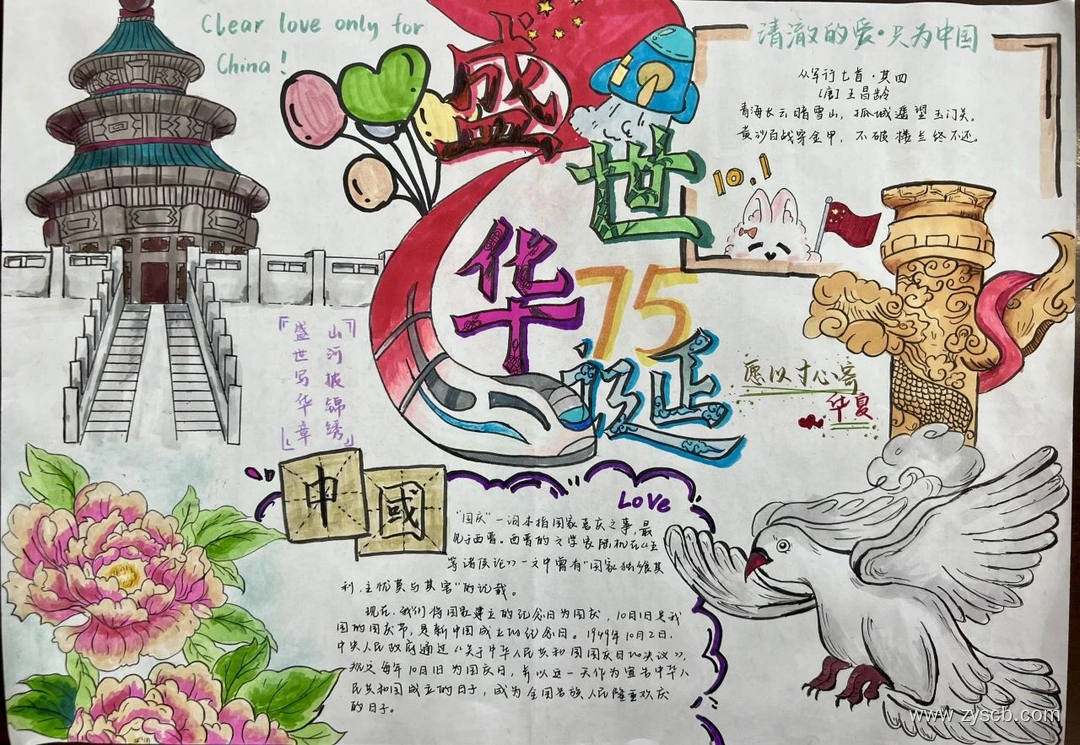 Clear love only for
China!
盛世华诞
75
清澈的爱·只为中国
从军行七首·其四
[唐]王昌龄
青海长云暗雪山，孤城遥望玉门关。
黄沙百战穿金甲，不破楼兰终不还。
10.1
『山河披锦绣
盛世写华章』
愿以寸心寄
华夏
中國
Love
"国庆"一词本指国家喜庆之事，最
见于西晋。西晋的文学家陆机在《五
等诸侯论》一文中曾有"国家独飨其
利，主忧莫与其害"的记载。
现在，我们将国家建立的纪念日为国庆，10月1日是我
国的国庆节，是新中国成立的纪念日。1949年10月2日，
中央人民政府通过《关于中华人民共和国国庆日的决议》，
规定每年10月1日为国庆日，并以这一天作为宣告中华人
民共和国成立的日子，成为全国各族人民隆重欢庆
的日子。
www.zyscb.com